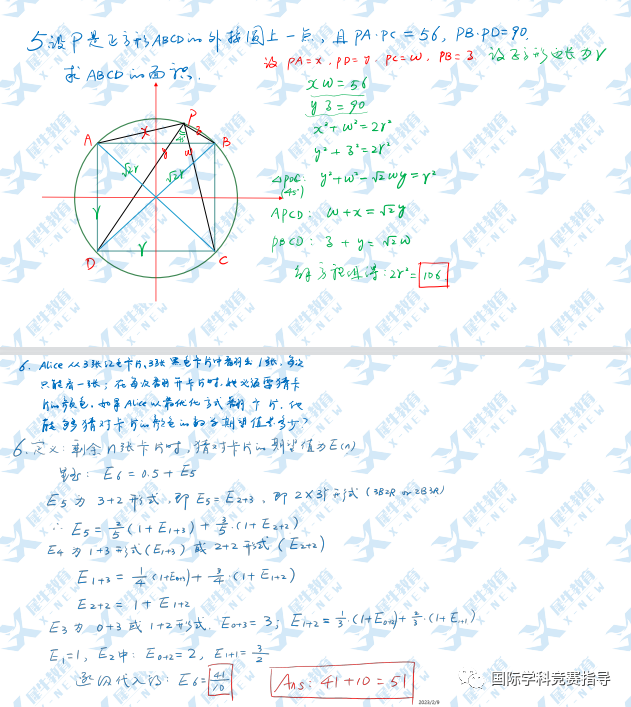 5 设P是正方形ABCD的外接圆上一点, 且 PA·PC=56, PB·PD=90.
求ABCD的面积.
设 PA=x, PD=y, PC=w, PB=z 设正方形边长为r
xw=56
yz=90
x²+w²=2r²
y²+z²=2r²
△PDC: y²+w²-√2wy=r²
(45°)
APCD: w+x=√2y
PBCD: z+y=√2w
解方程组得: 2r²=106
P
A
x
z
B
y
w
√2r
√2r
r
r
D
C
6. Alice 从3张红色卡片、3张黑色卡片中翻动1张, 每次
只能有一张; 在每次翻开卡片时, 她必须要猜卡
片的颜色. 如果Alice以最优化方式翻卡片, 她
能够猜对卡片的颜色的期望值是多少?
6. 定义: 剩余n张卡片时, 猜对卡片的期望值为E(n)
E₆=0.5+E₅
E₅ 为 3+2 形式, 即 E₅=E₂₊₃, 即 2×3形式 (3B2R or 2B3R)
∴ E₅=2/5(1+E₁₊₃)+3/5·(1+E₂₊₂)
E₄ 为 1+3形式(E₁₊₃) 或 2+2 形式 (E₂₊₂)
E₁₊₃=1/4·(1+E₀₊₃)+3/4·(1+E₁₊₂)
E₂₊₂=1+E₁₊₂
E₃ 为 0+3 或 1+2形式. E₀₊₃=3; E₁₊₂=1/3·(1+E₀₊₂)+2/3·(1+E₁₊₁)
E₁=1, E₂中: E₀₊₂=2, E₁₊₁=3/2
逐级代入得: E₆=41/10
Ans: 41+10=51
国际学科竞赛指导
2023/2/9
犀牛教育
X-NEW